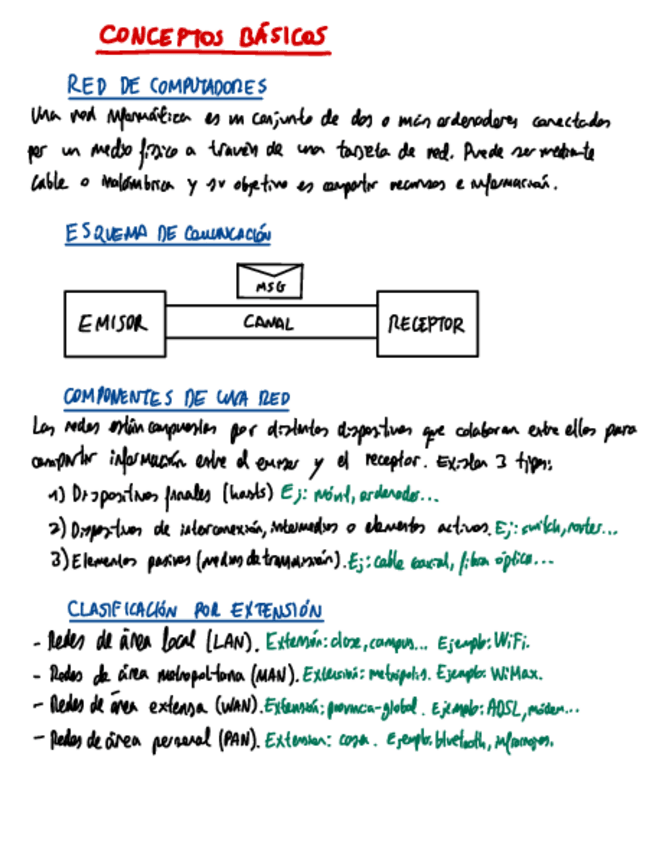 CONCEPTOS BÁSICOS
RED DE COMPUTADORES
Una red informática es un conjunto de dos o más ordenadores conectados
por un medio físico a través de una tarjeta de red. Puede ser mediante
cable o inalámbrica y su objetivo es compartir recursos e información.
ESQUEMA DE COMUNICACIÓN
MSG
EMISOR CANAL RECEPTOR
COMPONENTES DE UNA RED
Las redes están compuestas por distintos dispositivos que colaboran entre ellos para
compartir información entre el emisor y el receptor. Existen 3 tipos:
1) Dispositivos finales (hosts) Ej: móvil, ordenador...
2) Dispositivos de interconexión, intermedios o elementos activos. Ej: switch, router...
3) Elementos pasivos (medios de transmisión). Ej: cable coaxial, fibra óptica...
CLASIFICACIÓN POR EXTENSIÓN
- Redes de área local (LAN). Extensión: clase, campus... Ejemplo: WiFi.
- Redes de área metropolitana (MAN). Extensión: metrópolis. Ejemplo: WiMax.
- Redes de área extensa (WAN). Extensión: provincia-global. Ejemplo: ADSL, módem...
- Redes de área personal (PAN). Extension: casa. Ejemplo: bluetooth, infrarrojos.